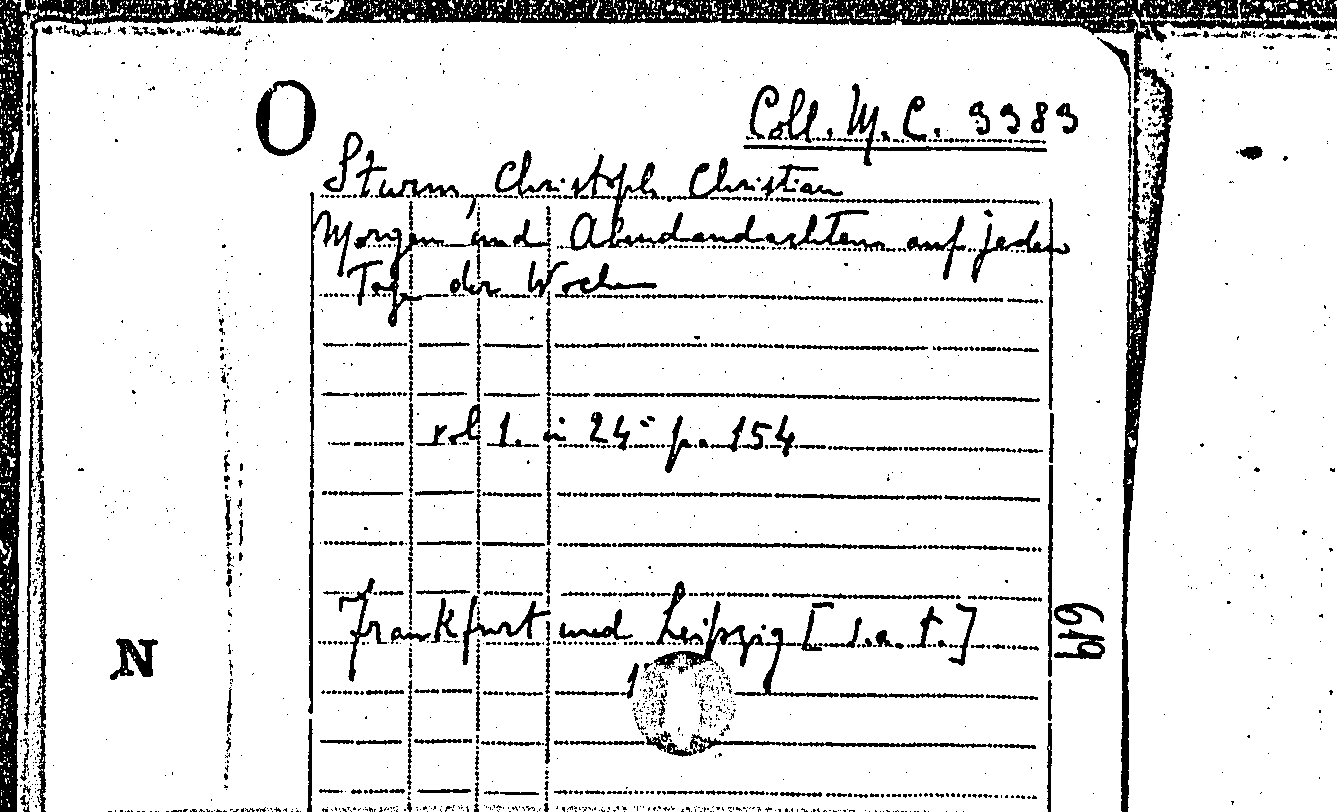 O
Coll. M. C. 3383
Sturm, Christoph Christian
Morgen und Abendandachten auf jeden
Tage der Woche
vol 1. in 24° p. 154
Frankfurt und Leipzig [s.a.t.]
N